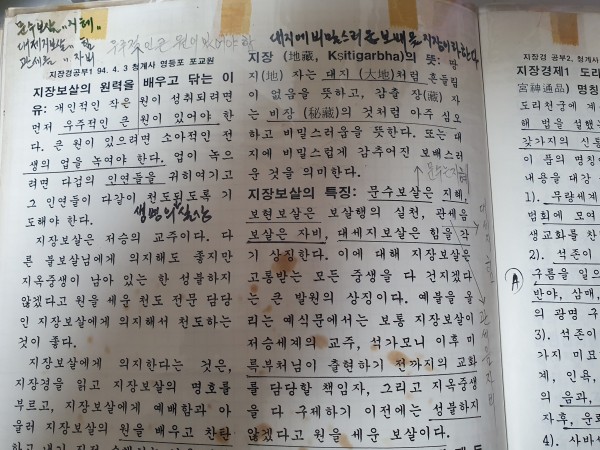 문수보살 - 지혜
대세지보살 - 힘
관세음 - 자비
우주적인 큰 원이 있어야 한
지장경공부1 94. 4. 3 청계사 영등포 포교원
지장보살의 원력을 배우고 닦는 이
유: 개인적인 작은 원이 성취되려면
먼저 우주적인 큰 원이 있어야 한
다. 큰 원이 있으려면 소아적인 전
생의 업을 녹여야 한다. 업이 녹으
려면 다겁의 인연들을 귀히여기고
그 인연들이 다같이 천도되도록 기
도해야 한다.
생명의 실상
지장보살은 저승의 교주이다. 다
른 불보살님에게 의지해도 좋지만
지옥중생이 남아 있는 한 성불하지
않겠다고 원을 세운 천도 전문 담당
인 지장보살에게 의지해서 천도하는
것이 좋다.
지장보살에게 의지한다는 것은,
지장경을 읽고 지장보살의 명호를
부르고, 지장보살에게 예배함과 아
울러 지장보살의 원을 배우고 찬탄
대지에 비밀스러운 보배를 지장이라 한다
지장 (地藏, Kṣitigarbha)의 뜻: 땅
지(地) 자는 대지 (大地)처럼 흔들림
이 없음을 뜻하고, 감출 장(藏) 자
는 비장 (秘藏)의 것처럼 아주 심오
하고 비밀스러움을 뜻한다. 또는 대
지에 비밀스럽게 감추어진 보배스러
운 것을 의미한다.
지장보살의 특징: 문수보살은 지혜,
보현보살은 보살행의 실천, 관세음
보살은 자비, 대세지보살은 힘을 각
기 상징한다. 이에 대해 지장보살은
고통받는 모든 중생을 다 건지겠다
는 큰 발원의 상징이다. 예불을 올
리는 예식문에서는 보통 지장보살이
저승세계의 교주, 석가모니 이후 미
륵부처님이 출현하기 전까지의 교화
를 담당할 책임자, 그리고 지옥중생
을 다 구제하기 이전에는 성불하지
않겠다고 원을 세운 보살이다.
지장경 공부2. 청계
지장경제1 도리
宮神通品) 명칭
도리천궁에 계
해 법을 설했는
갖가지의 신통
이 품의 명칭이
내용을 대강
1). 무량세계
법회에 모여
생교화를 찬
2). 석존이
구름을 일으
반야, 삼매,
의 광명 구
3). 석존이
가지 미묘
계, 인욕,
의 음과,
자후, 운뢰
4). 사바세
A